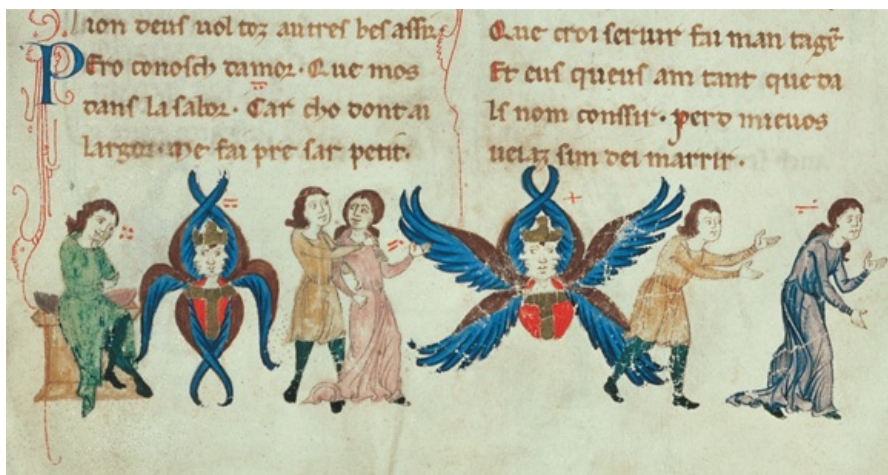 lion deus uol toz autres bes assir
Pero conosch damor. Que mos
dans la sabor. Car cho dont ai
largor. Me fai pre sar petit.
Que croi seruir fai man tage
Et eus queus am tant que da
ls nom conssir. pero mieuos
uelaz sim dei marrir.